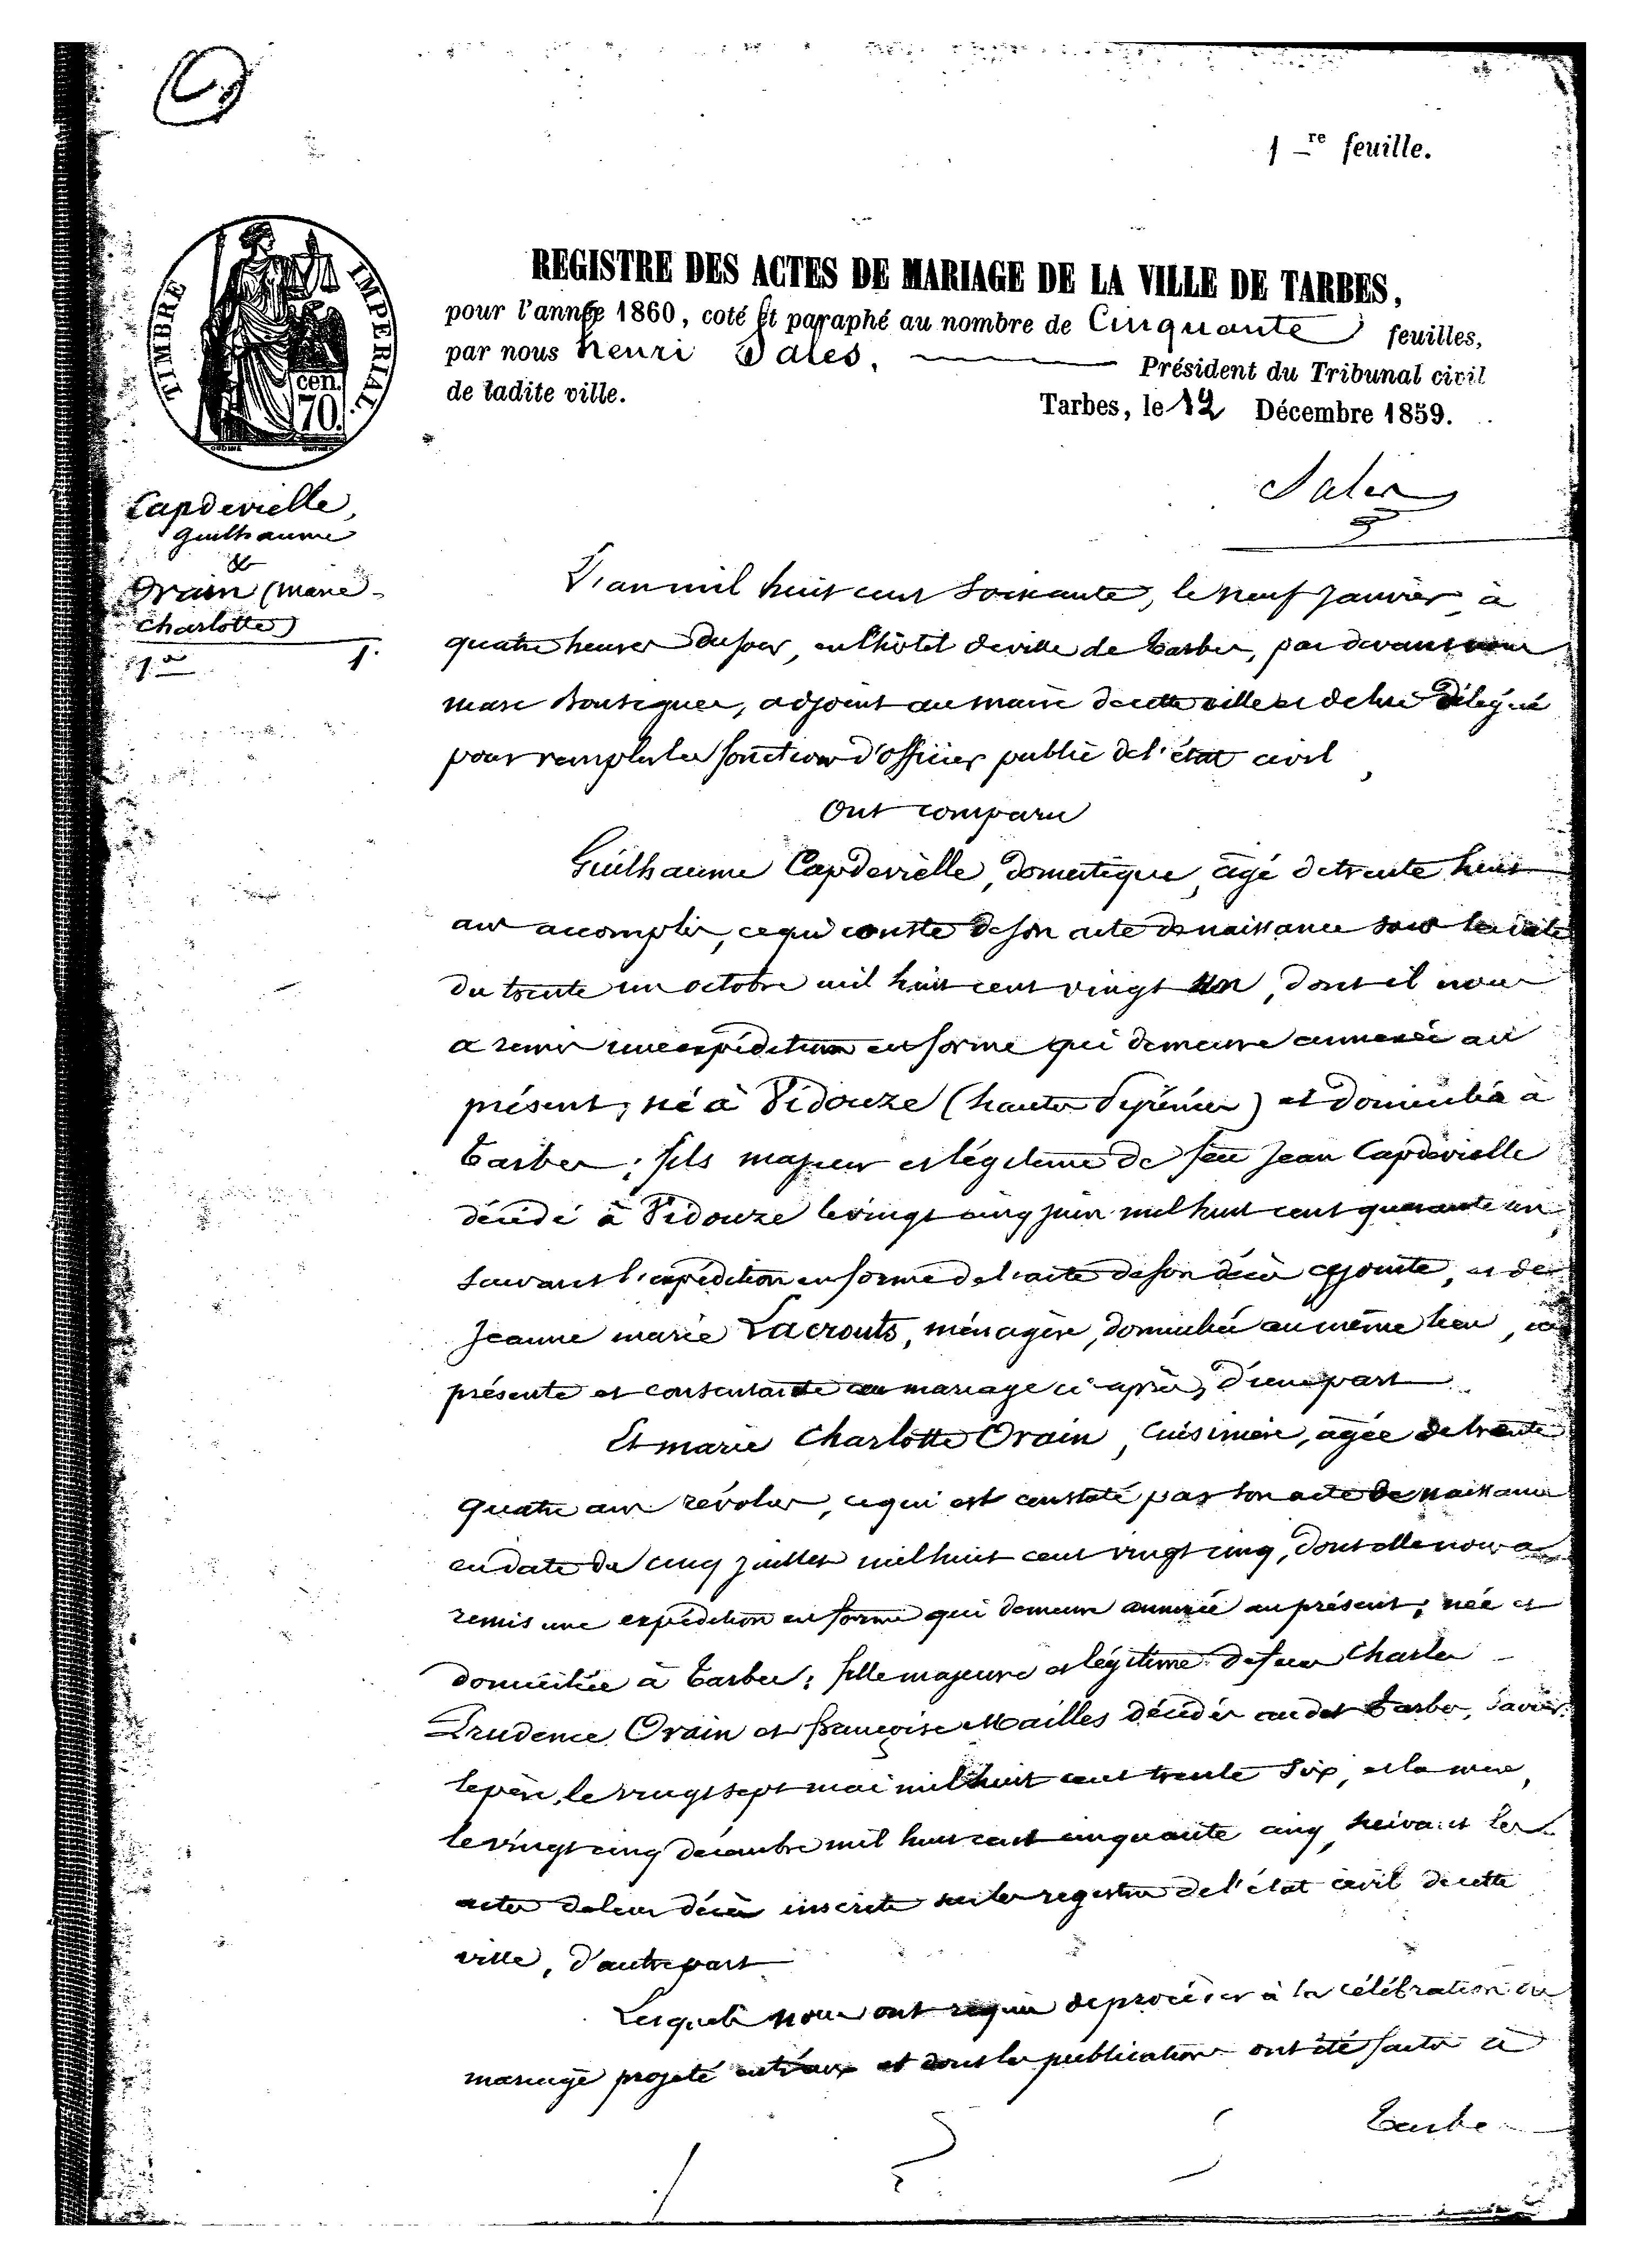 1 re feuille.
TIMBRE IMPERIAL
cen.
70.
REGISTRE DES ACTES DE MARIAGE DE LA VILLE DE TARBES,
pour l'année 1860, coté et paraphé au nombre de Cinquante feuilles,
par nous henri Sales, Président du Tribunal civil
de ladite ville.
Tarbes, le 12 Décembre 1859.
Sales
Capdevielle,
Guilhaume
&
Orain (marie
Charlotte)
1.
L'an mil huit cent soixante, le neuf janvier, à
quatre heures du soir, en l'hôtel de ville de Tarbes, par devant nous
marc, adjoint au maire de cette ville et de lui délégué
pour remplir les fonctions d'officier public de l'état civil,
Ont comparu
Guilhaume Capdevielle, domestique, âgé de trente huit
ans accomplis, ce qui conste de son acte de naissance sous la date
du trente un octobre mil huit cent vingt un, dont il nous
a remis une expédition en forme qui demeure annexée au
présent; né à Vidouze (hautes Pyrénées) et domicilié à
Tarbes; fils majeur et légitime de feu Jean Capdevielle
décédé à Vidouze le vingt cinq juin mil huit cent quarante un,
suivant l'expédition en forme de l'acte de son décès cy jointe, et de
Jeanne marie Lacrouts, ménagère, domiciliée au même lieu, ici
présente et consentante au mariage ci après, d'une part
Et marie Charlotte Orain, cuisinière, âgée de trente
quatre ans révolus, ce qui est constaté par son acte de naissance
en date du cinq juillet mil huit cent vingt cinq, dont elle nous a
remis une expédition en forme qui demeure annexée au présent; née et
domiciliée à Tarbes; fille majeure et légitime de feus Charles
Prudence Orain et françoise Mailles décédés audit Tarbes, savoir:
le père, le vingt sept mai mil huit cent trente six, et la mère,
le vingt cinq décembre mil huit cent cinquante cinq, suivant les
actes de leur décès inscrits sur les registres de l'état civil de cette
ville, d'autre part
Lesquels nous ont requis de procéder à la célébration du
mariage projeté entr'eux et dont les publications ont été faites à
Tarbes